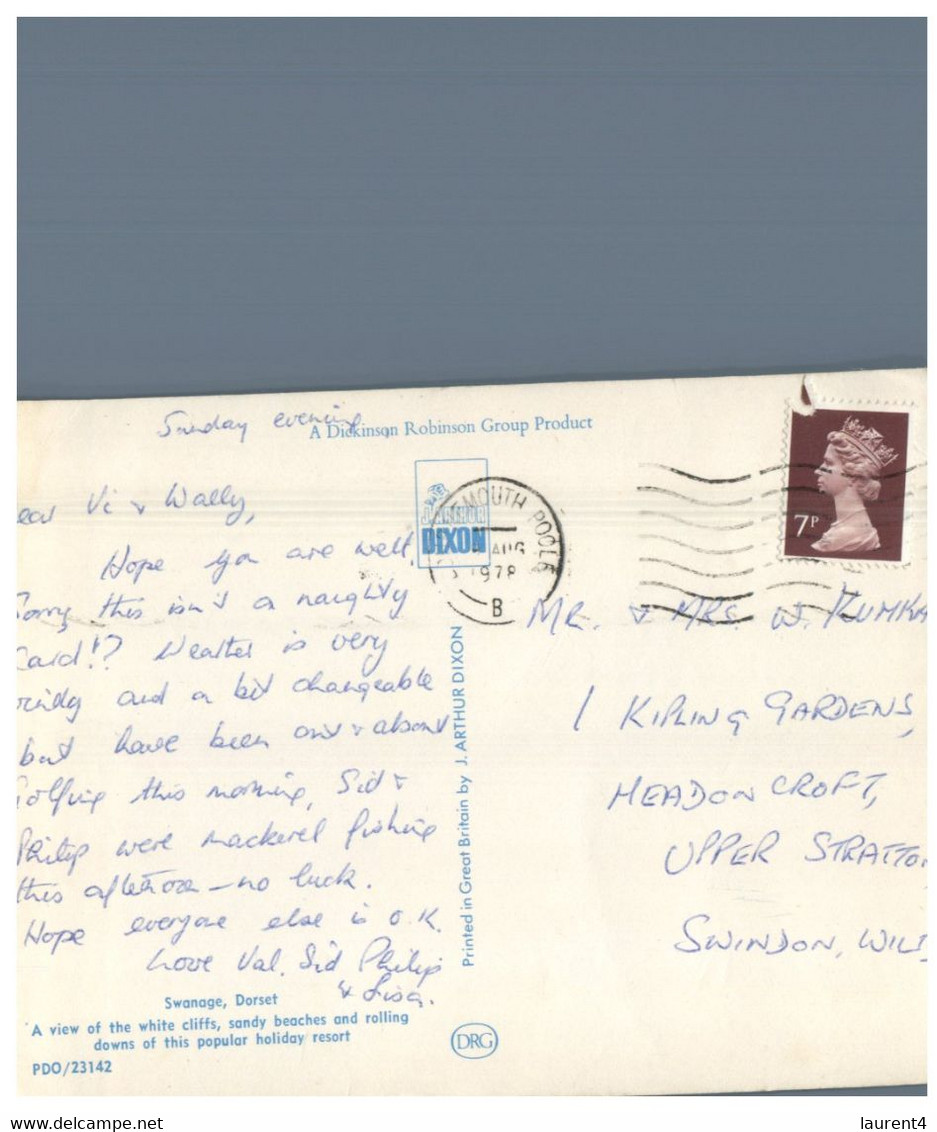 Sunday evening
A Dickinson Robinson Group Product
ear Vi & Wally,
Hope you are well
Sorry this isn't a naughty
Card!? Weather is very
windy and a bit changeable
but have been out & about
Golfing this morning, Sid &
Philip were mackerel fishing
this afternoon - no luck.
Hope everyone else is O.K.
Love Val. Sid Philip
& Lisa.
Swanage, Dorset
A view of the white cliffs, sandy beaches and rolling
downs of this popular holiday resort
PDO/23142
J. ARTHUR
DIXON
Printed in Great Britain by J. ARTHUR DIXON
DRG
MOUTH POOLE
AUG
1978
B
7P
MR. & MRS. W.
1 KIPLING GARDENS,
MEADOWCROFT,
UPPER STRATTO
SWINDON, WIL
delcampe.net
laurent4